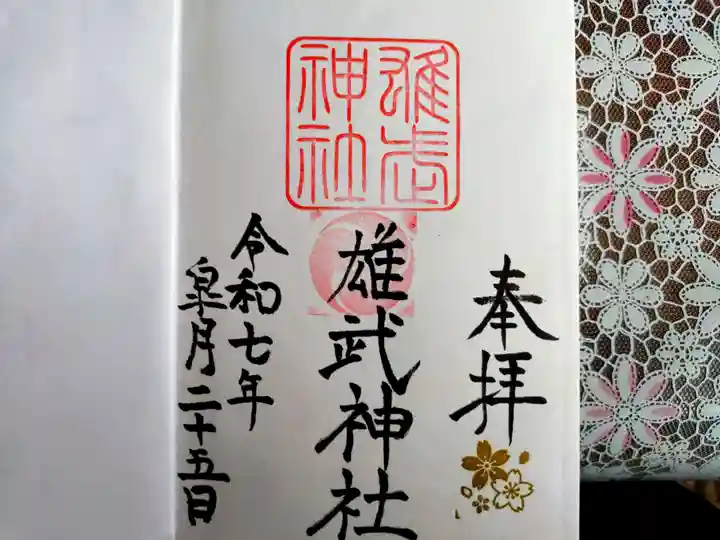 奉拝
雄武神社
雄武
神社
令和七年
皐月二十五日